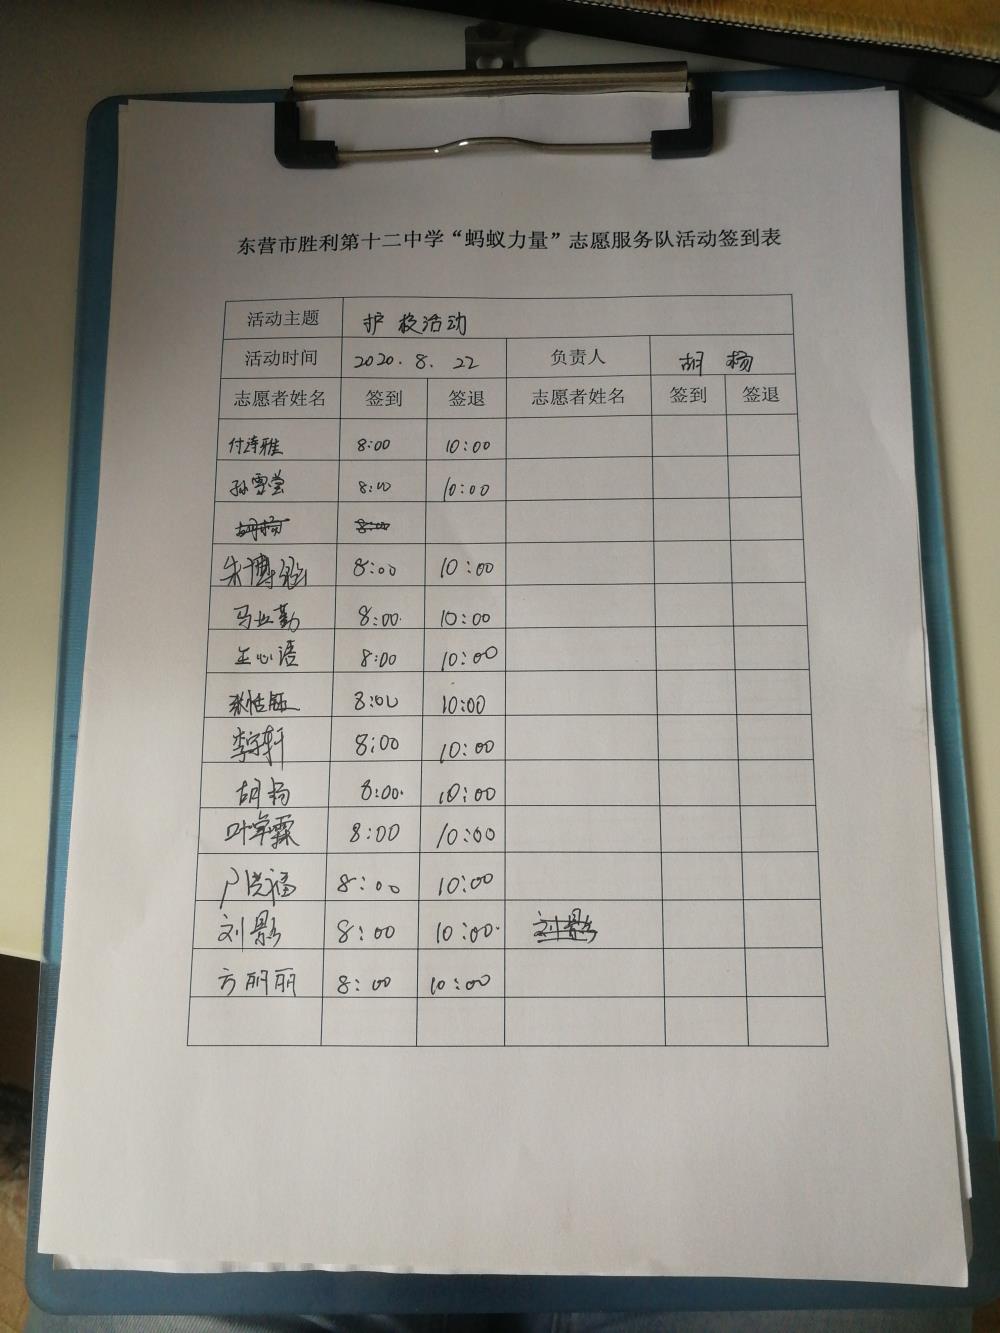 东营市胜利第十二中学“蚂蚁力量”志愿服务队活动签到表
活动主题 护校活动
活动时间 2020.8.22 负责人 胡杨
志愿者姓名 签到 签退 志愿者姓名 签到 签退
付诗雅 8:00 10:00
孙雪莹 8:00 10:00
胡杨 8:00
朱博 8:00 10:00
马立勤 8:00 10:00
王心语 8:00 10:00
张恬钰 8:00 10:00
李宇轩 8:00 10:00
胡杨 8:00 10:00
叶 霖 8:00 10:00
卢洪福 8:00 10:00
刘影 8:00 10:00 刘影
方丽丽 8:00 10:00